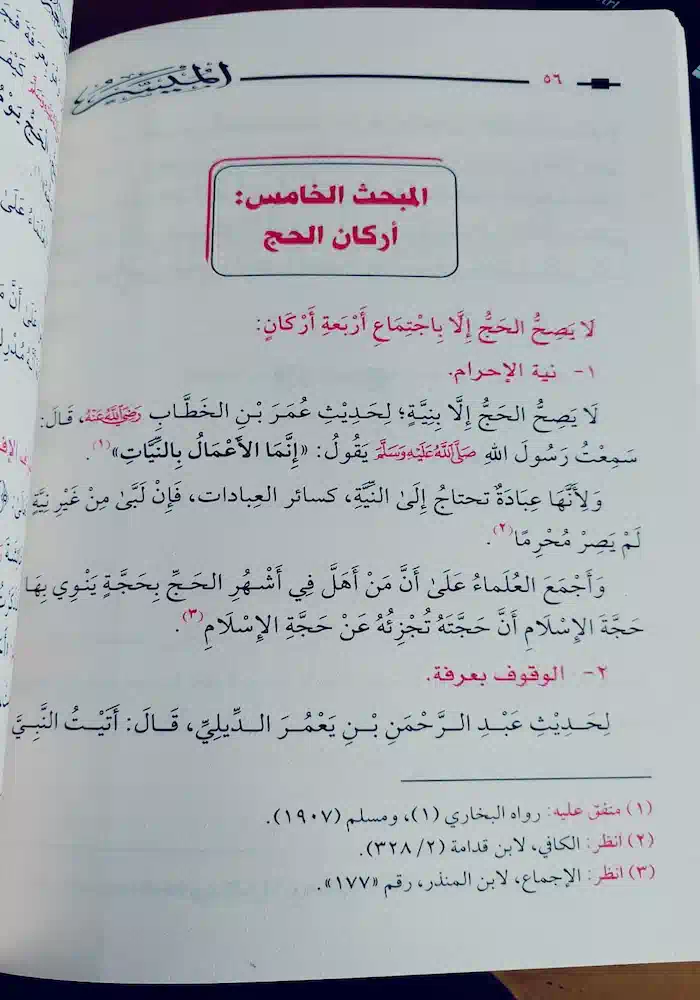 ٥٦
المبحث الخامس:
أركان الحج
لَا يَصِحُّ الحَجُّ إِلَّا بِاجْتِمَاعِ أَرْبَعَةِ أَرْكَانٍ:
١- نية الإحرام.
لَا يَصِحُّ الحَجُّ إِلَّا بِنِيَّةٍ؛ لِحَدِيثِ عُمَرَ بْنِ الخَطَّابِ رَضِيَ اللَّهُ عَنْهُ، قَالَ:
سَمِعْتُ رَسُولَ اللهِ صَلَّى اللَّهُ عَلَيْهِ وَسَلَّمَ يَقُولُ: «إِنَّمَا الأَعْمَالُ بِالنِّيَّاتِ»(١).
وَلِأَنَّهَا عِبَادَةٌ تحتاجُ إِلَى النِّيَّةِ، كسائر العِبادات، فَإِنْ لَبَّىٰ مِنْ غَيْرِ نِيَّةٍ
لَمْ يَصِرْ مُحْرِمًا(٢).
وَأَجْمَعَ العُلَماءُ عَلَىٰ أَنَّ مَنْ أَهَلَّ فِي أَشْهُرِ الحَجِّ بِحَجَّةٍ يَنْوِي بِهَا
حَجَّةَ الإِسْلَامِ أَنَّ حَجَّتَهُ تُجْزِئُهُ عَنْ حَجَّةِ الإِسْلَامِ(٣).
٢- الوقوف بعرفة.
لِحَدِيثِ عَبْدِ الرَّحْمَنِ بْنِ يَعْمُرَ الدِّيلِيِّ، قَالَ: أَتَيْتُ النَّبِيَّ
(١) متفق عليه: رواه البخاري (١)، ومسلم (١٩٠٧).
(٢) انظر: الكافي، لابن قدامة (٢/ ٣٢٨).
(٣) انظر: الإجماع، لابن المنذر، رقم «١٧٧».